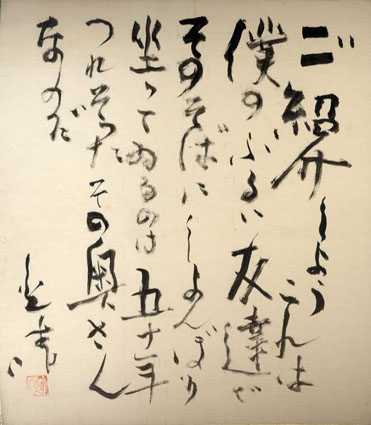 ご紹介しようこれは
僕のふるい友達だ
そのそばにしよんぼり
坐つてゐるのは五十年
つれそつたその奥さん
なのだ